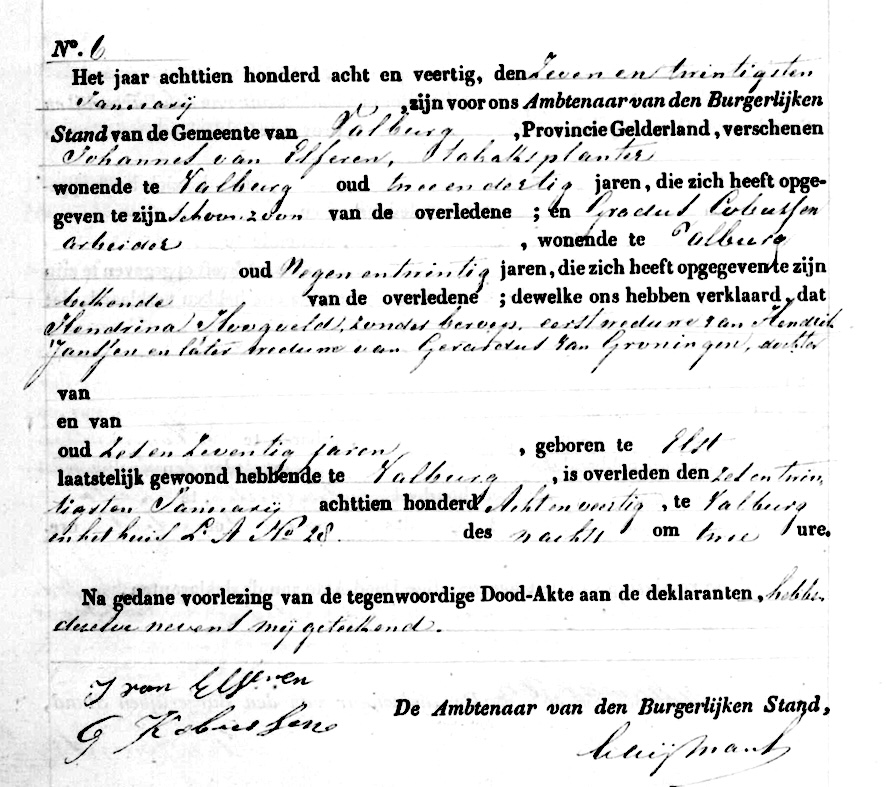 No. 6
Het jaar achttien honderd acht en veertig, den Zeven en twintigsten
Januarij , zijn voor ons Ambtenaar van den Burgerlijken
Stand van de Gemeente van Valburg , Provincie Gelderland, verschenen
Johannes van Elferen, tabaksplanter
wonende te Valburg oud twee en dertig jaren, die zich heeft opge-
geven te zijn schoonzoon van de overledene ; en Gradus Cobussen
arbeider , wonende te Valburg
oud Negen en twintig jaren, die zich heeft opgegeven te zijn
bekende van de overledene ; dewelke ons hebben verklaard, dat
Hendrina Hoogveld, zonder beroep, eerst weduwe van Hendrik
Janssen en later weduwe van Gerardus van Groningen, dochter
van
en van
oud Zes en Zeventig jaren , geboren te Elst
laatstelijk gewoond hebbende te Valburg , is overleden den zes en twin-
tigsten Januarij achttien honderd Acht en veertig , te Valburg
in het huis L. A No 28. des nachts om twee ure.
Na gedane voorlezing van de tegenwoordige Dood-Akte aan de deklaranten, hebben
dezelve nevens mij geteekend.
J van Elferen
G Kobussen
De Ambtenaar van den Burgerlijken Stand,